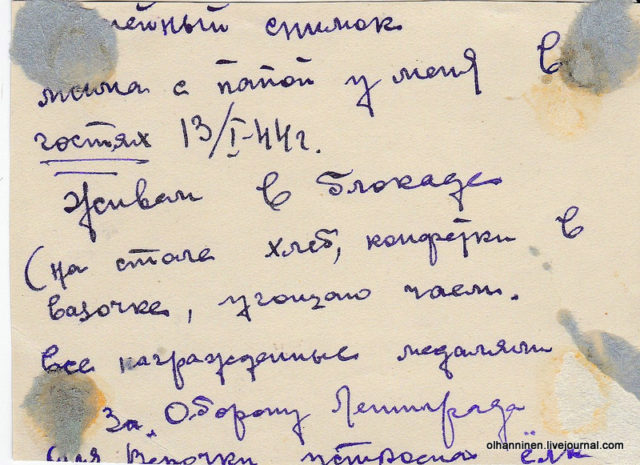 ейный снимок
мама с папой у меня в
гостях 13/I-44г.
Живем в блокаде
(на столе хлеб, конфетки в
вазочке, угощаю чаем.
все награжденные медалями
За Оборону Ленинграда
Для Верочки ёлк
olhanninen.livejournal.com